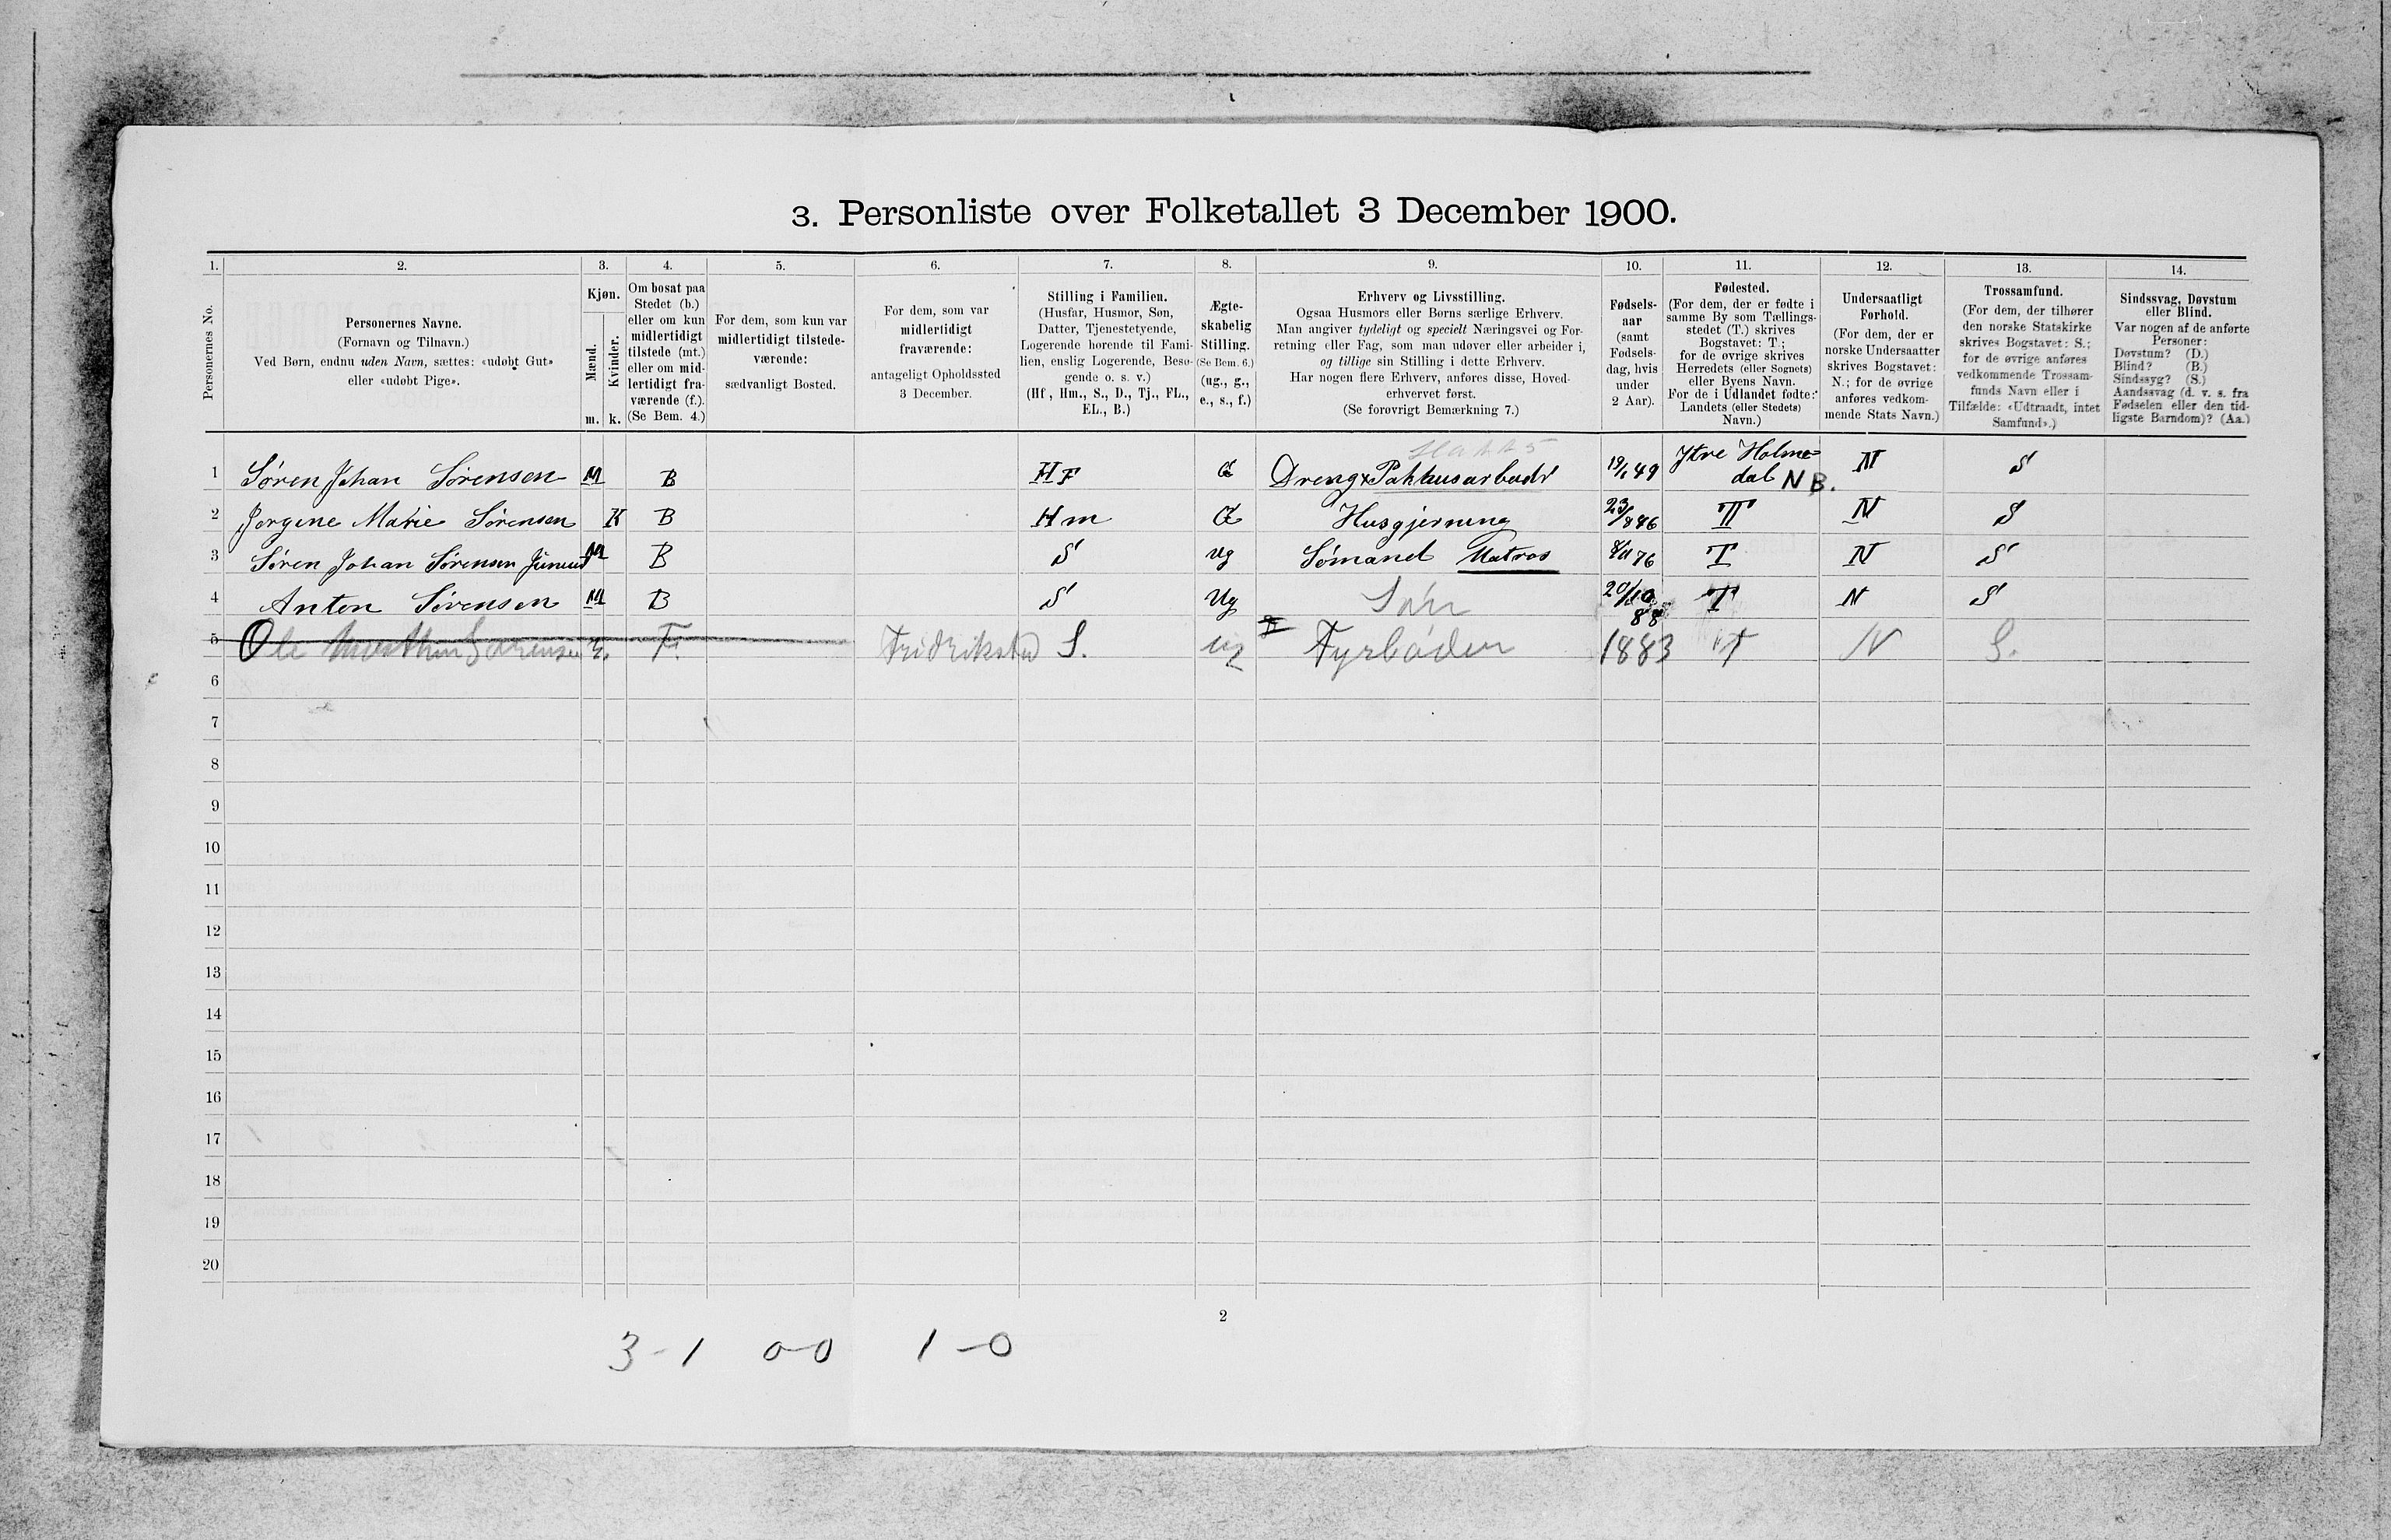 3. Personliste over Folketallet 3 December 1900.
1. 2. 3. 4. 5. 6. 7. 8. 9. 10. 11. 12. 13. 14.
Personernes No.
Personernes Navne.
(Fornavn og Tilnavn.)
Ved Børn, endnu uden Navn, sættes: «udøbt Gut»
eller «udøbt Pige».
Kjøn.
Mænd.
Kvinder.
m. k.
Om bosat paa
Stedet (b.)
eller om kun
midlertidigt
tilstede (mt.)
eller om mid-
lertidigt fra-
værende (f.).
(Se Bem. 4.)
For dem, som kun var
midlertidigt tilstede-
værende:
sædvanligt Bosted.
For dem, som var
midlertidigt
fraværende:
antageligt Opholdssted
3 December.
Stilling i Familien.
(Husfar, Husmor, Søn,
Datter, Tjenestetyende,
Logerende hørende til Fami-
lien, enslig Logerende, Besø-
gende o. s. v.)
(Hf., Hm., S., D., Tj., FL.,
EL., B.)
Ægte-
skabelig
Stilling.
(Se Bem. 6.)
(ug., g.,
e., s., f.)
Erhverv og Livsstilling.
Ogsaa Husmors eller Børns særlige Erhverv.
Man angiver tydeligt og specielt Næringsvei og For-
retning eller Fag, som man udøver eller arbeider i,
og tillige sin Stilling i dette Erhverv.
Har nogen flere Erhverv, anføres disse, Hoved-
erhvervet først.
(Se forøvrigt Bemærkning 7.)
Fødsels-
aar
(samt
Fødsels-
dag, hvis
under
2 Aar).
Fødested.
(For dem, der er fødte i
samme By som Tællings-
stedet (T.) skrives
Bogstavet: T.;
for de øvrige skrives
Herredets (eller Sognets)
eller Byens Navn.
For de i Udlandet fødte:
Landets (eller Stedets)
Navn.)
Undersaatligt
Forhold.
(For dem, der er
norske Undersaatter
skrives Bogstavet:
N.; for de øvrige
anføres vedkom-
mende Stats Navn.)
Trossamfund.
(For dem, der tilhører
den norske Statskirke
skrives Bogstavet: S.;
for de øvrige anføres
vedkommende Trossam-
funds Navn eller i
Tilfælde: «Udtraadt, intet
Samfund».)
Sindssvag, Døvstum
eller Blind.
Var nogen af de anførte
Personer:
Døvstum? (D.)
Blind? (B.)
Sindssyg? (S.)
Aandssvag (d. v. s. fra
Fødselen eller den tid-
ligste Barndom)? (Aa.)
1 Søren Johan Sørensen M B HF G Dreng x Pakhusarbeidr 19/1 49 Ytre Holme=
dal NB. N S
2 Jørgine Marie Sørensen K B Hm G Husgjerning 23/8 46 T N S
3 Søren Johan Sørensen M B S ug Sømand Matros 8/11 76 T N S
4 Anton Sørensen M B S Ug Søn 20/10 88 T N S
5 Ole Sørensen F. Fridriksted S. ug Fyrbøder 1883 T N S.
6
7
8
9
10
11
12
13
14
15
16
17
18
19
20
2
3-1 0-0 1-0